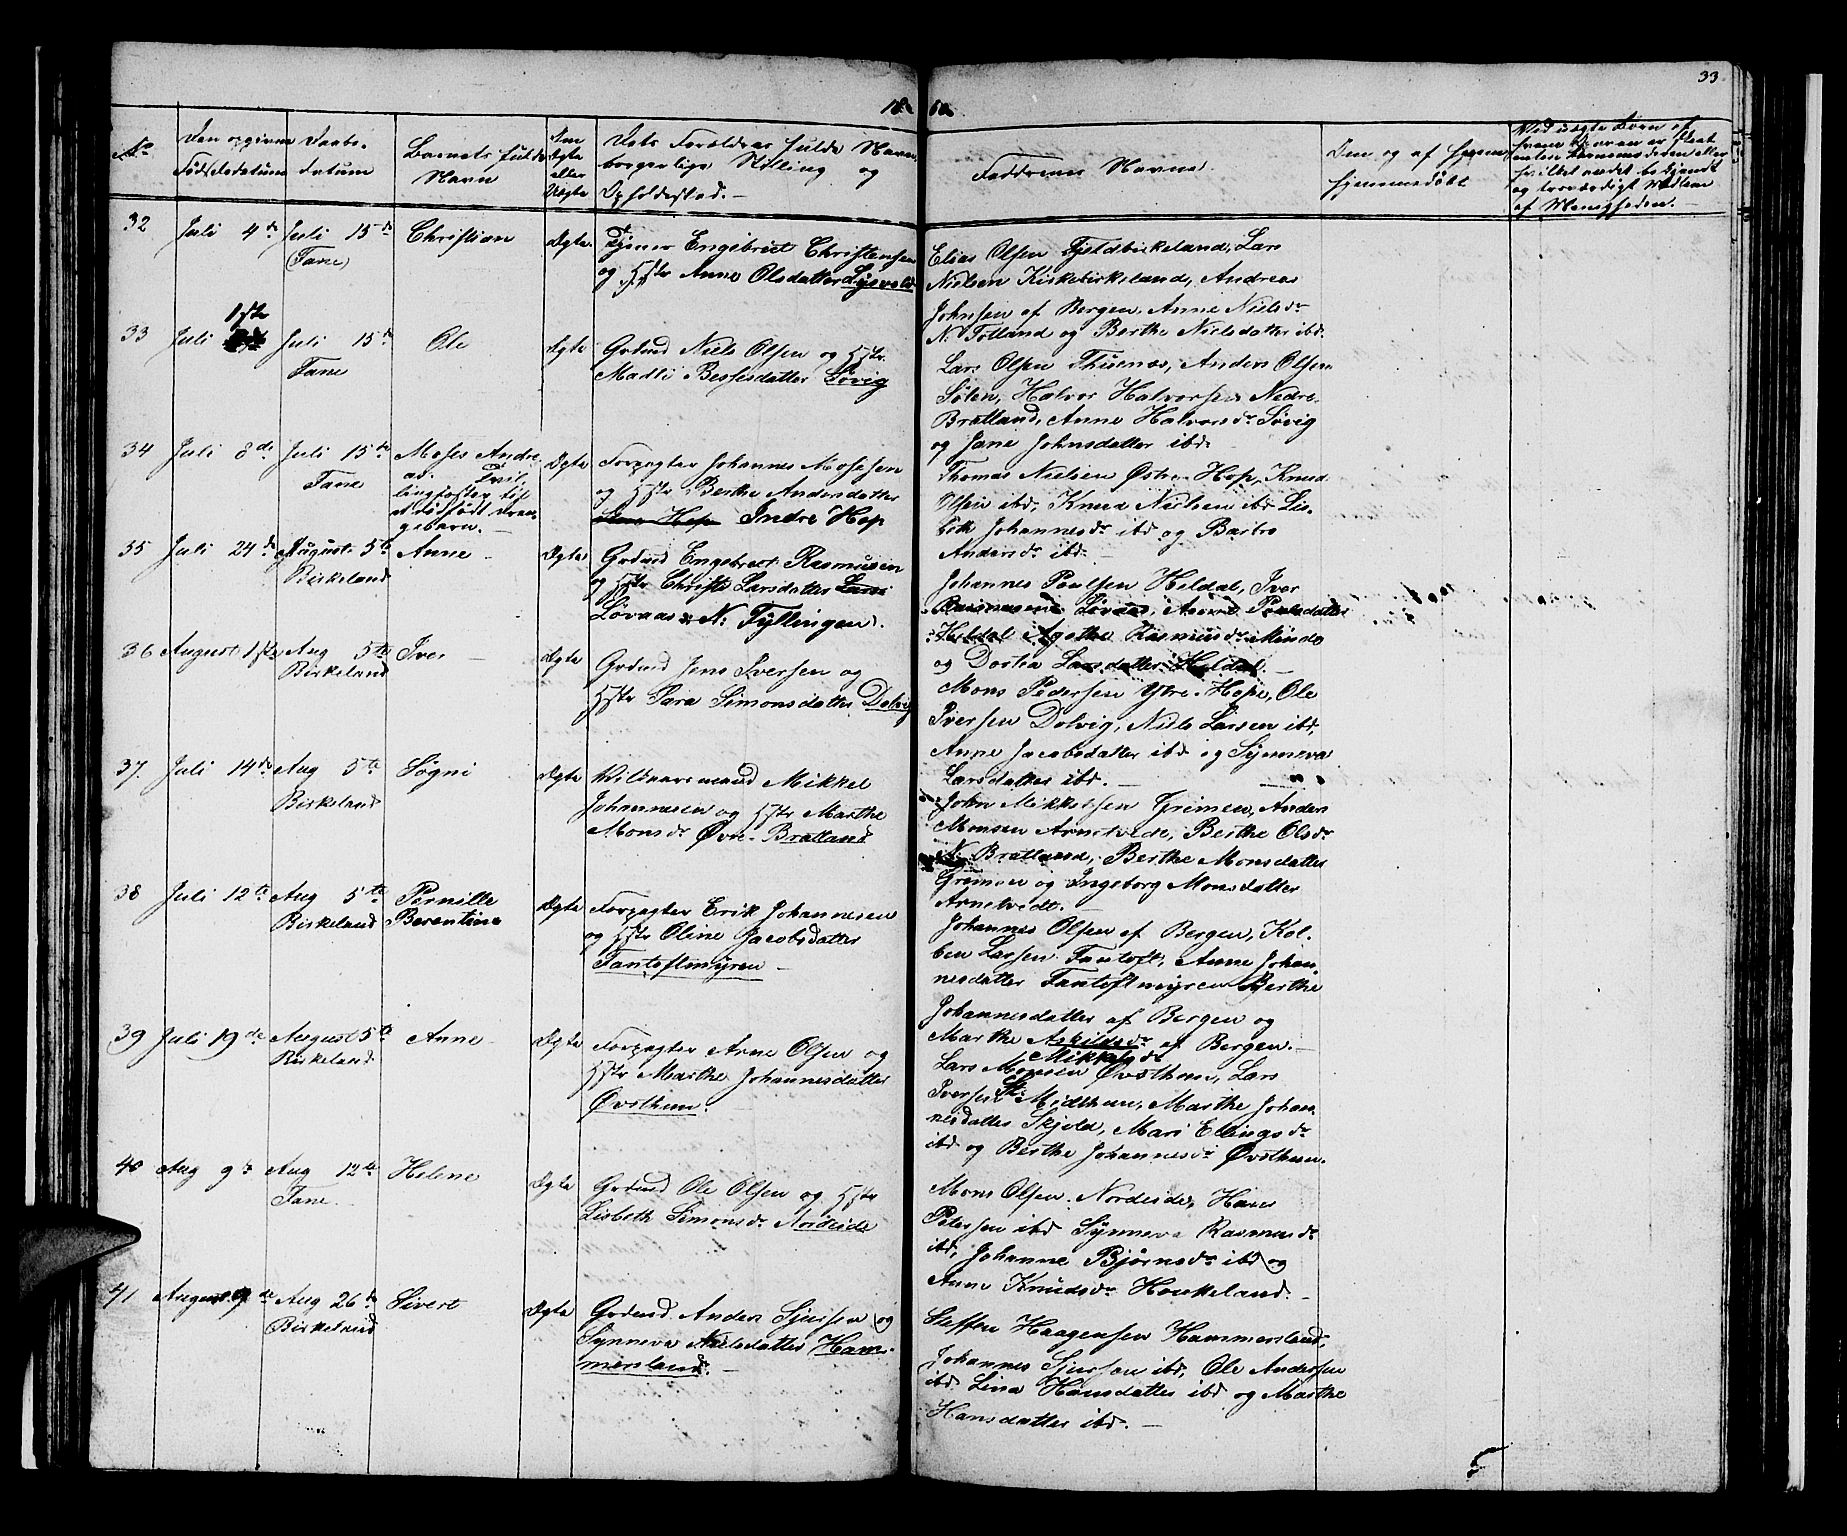 33
18 60.
No
Den opgivne Fødselsdatum
Daabs-datum
Barnets fulde Navn
Om Ægte eller Uægte
Dets Forældres fulde Navn, borgerlige Stilling og Opholdssted. –
Faddernes Navne.
Om og af hvem hjemmedøbt
32 Juli 4de Juli 15de (Fane) Christian Ægte.
Tjener Engebret Christensen
og Hstr Anne Olsdatter Lysvold
Elias Olsen Fjeldbirkeland, Lars
Nielsen Kirkebirkeland, Andreas
Johnsen af Bergen, Anne Nielsdr
N. Totland og Berthe Nielsdatter ibd.
33 Juli 1ste Juli 15de Fane Ole Ægte
Grdmd Niels Olsen og Hstr.
Madli Bessesdatter Søvig
Lars Olsen Thuenæs, Anders Olsen
Sølen, Halvor Halvorsen Nedre-
Bratland, Anne Halvorsdr Søvig
og Jane Johnsdatter ibd.
34 Juli 8de Juli 15de Fane
Moses Andre-
as. Tvil-
lingfoster til
et dødfødt dren-
gebarn. –
Ægte
Forpagter Johannes Mosesen
og Hstr Berthe Andersdatter
Indre Hop
Thomas Nielsen Østre-Hop, Knud
Olsen ibd, Knud Nielsen ibd Lis-
bth Johannesdr ibd og Barbro
Andersdr ibd. –
35 Juli 24de August 5te Birkeland Anne – Ægte
Grdmd Engebret Rasmusen
og Hstr Christi Larsdatter
Løvaas N: Fyllingen.
Johannes Poulsen Heldal, Iver
Rasmusen Løvaas, Anne Poulsdatter
Heldal Agathe Rasmusdr Minde
og Dortea Larsdatter Heldal. –
36 August 1ste Aug 5te Birkeland Iver – Ægte
Grdmd Jens Iversen og
Hstr Sara Simonsdatter Dolvig
Mons Pedersen Ytre-Hope, Ole
Iversen Dolvig, Niels Larsen ibd,
Anne Jacobsdatter ibd og Synneva
Larsdatter ibd. –
37. Juli 14de Aug 5te Birkeland Søgni Ægte
Vilkaarsmand Mikkel
Johannesen og Hstr Marthe
Monsdr Øvre-Bratland
John Mikkelsen Grimen, Anders
Monsen Arnetvede, Berthe Olsdr
N. Bratland, Berthe Monsdatter
Grimen og Ingeborg Monsdatter
Arnetvedt. –
38 Juli 12te Aug 5te Birkeland
Pernille
Berentine
Ægte
Forpagter Erik Johannesen
og Hstr Oline Jacobsdatter
Fantoftmyren –
Johannes Olsen af Bergen, Kol-
ben Larsen Fantoft, Anne Johan-
nesdatter Fantoftmyren Berthe
Johannesdatter af Bergen og
Marthe Mikkelsdr af Bergen. –
39 Juli 19de August 5te Birkeland Anne – Ægte
Forpagter Arne Olsen og
Hstr Marthe Johannesdatter
Øvsthun.
Lars Monsen Øvsthun, Lars
Iversen Midthun, Marthe Johan-
nesdatter Skjold, Mari Ellingsdr
ibd og Berthe Johannesdr Øvsthun.
40 Aug 9de Aug 12te Fane. Helene Ægte
Grdmd Ole Olsen og Hstr
Lisbeth Simonsdr Nordeide
Mons Olsen Nordeide, Hans
Petersen ibd Synneva Rasmusdr
ibd, Johanne Bjørnsdr ibd og
Anne Knudsdr Houkeland. –
41 August Aug 26de Birkeland Sivert Ægte
Grdmd Anders Sjursen og
Synneva Nielsdatter Ham-
mersland. –
Steffen Haagensen Hammersland,
Johannes Sjursen ibd, Ole Andersen
ibd. Lina Hansdatter ibd og Marthe
Hansdatter ibd. –